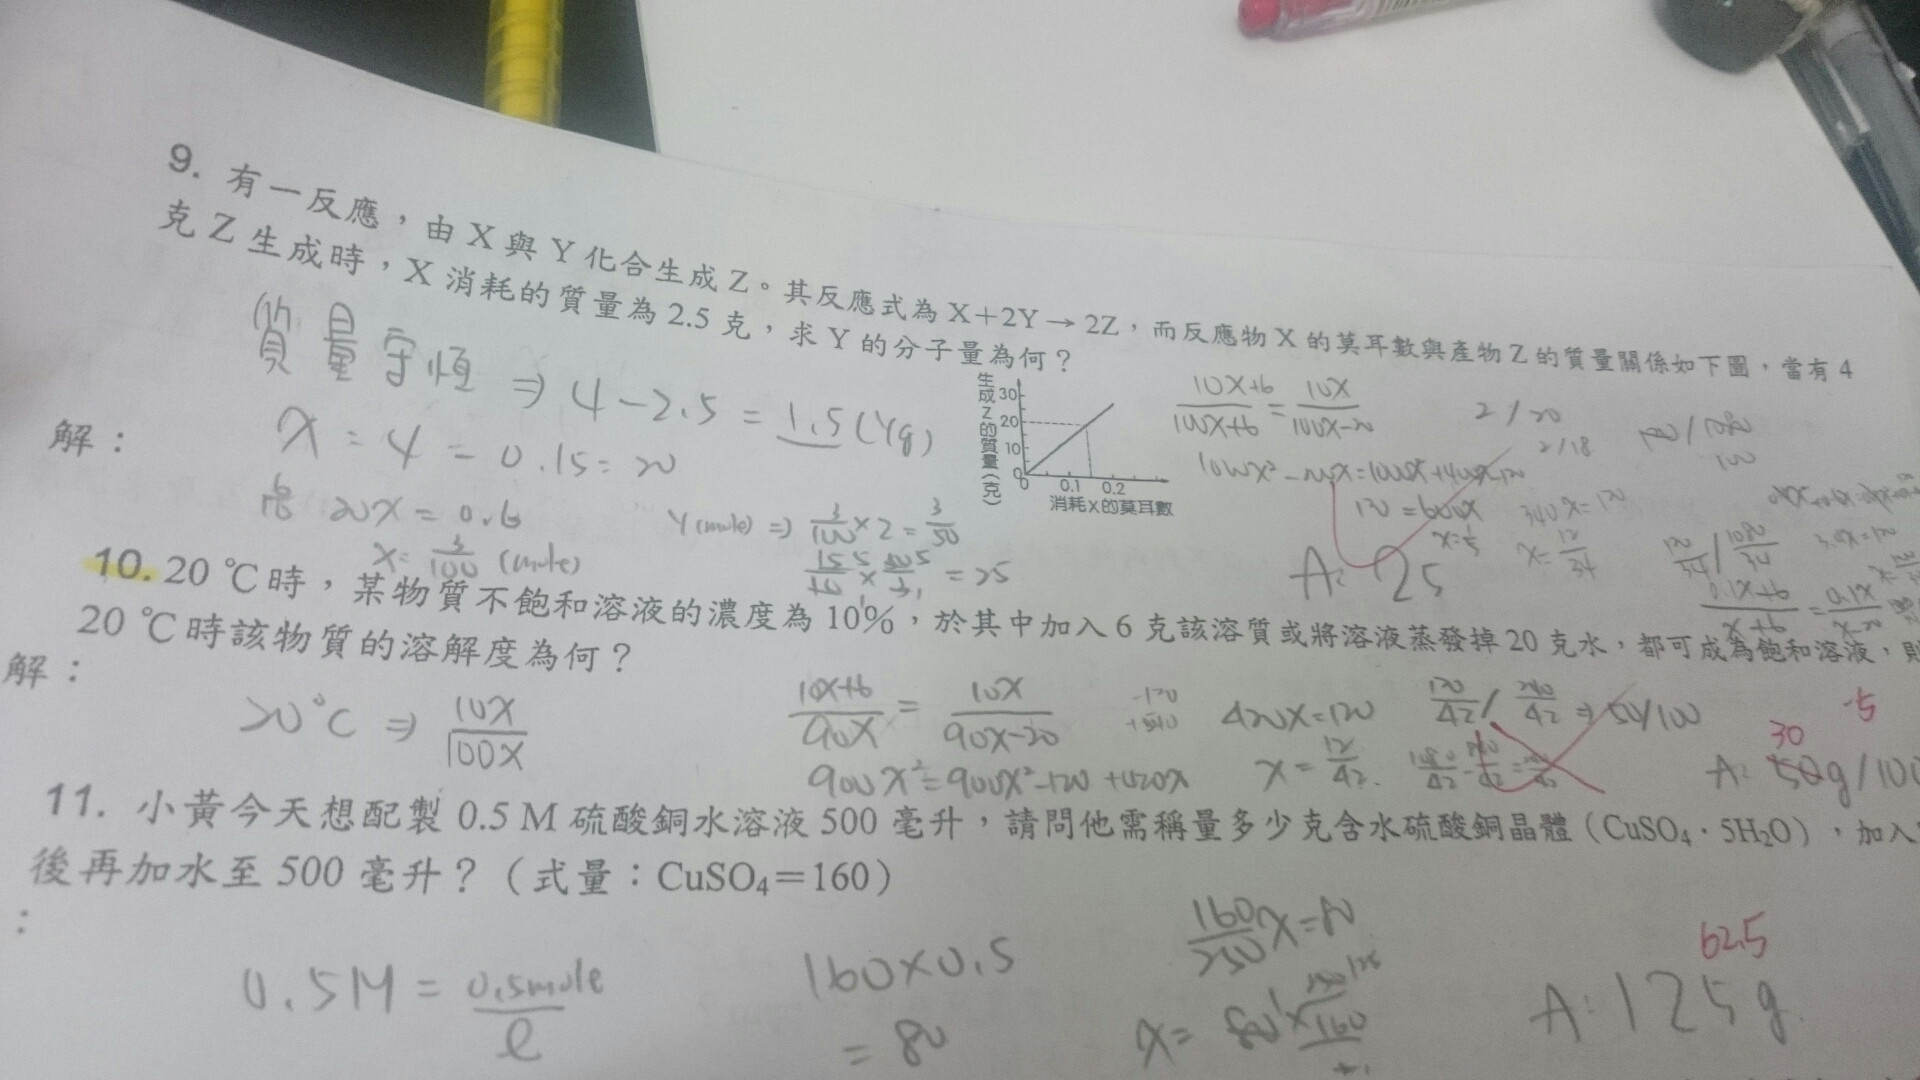 9. 有一反應，由 X 與 Y 化合生成 Z。其反應式為 X＋2Y → 2Z，而反應物 X 的莫耳數與產物 Z 的質量關係如下圖，當有 4
克 Z 生成時，X 消耗的質量為 2.5 克，求 Y 的分子量為何？
質量守恆 ⇒ 4－2.5 = 1.5(Yg)
解：
x : 4 = 0.15 : 20
20x = 0.6
x = 3/100 (mole)
Y(mole) ⇒ 3/100 × 2 = 3/50
= 25
生成Z的質量(克)
30
20
10
0
0
0.1 0.2
消耗X的莫耳數
10x+6/100x+6 = 10x/100x-20
2/20
2/18
120 = 600x
340x = 120
x = 12/34
A: 25
10. 20 ℃時，某物質不飽和溶液的濃度為 10%，於其中加入 6 克該溶質或將溶液蒸發掉 20 克水，都可成為飽和溶液，則
20 ℃時該物質的溶解度為何？
解：
20°C ⇒ 10x/100x
10x+6/90x = 10x/90x-20
900x² = 900x² -120 +420x
420x = 120
x = 12/42
⇒ 50/100
-5
30
A: 50g/100
11. 小黃今天想配製 0.5 M 硫酸銅水溶液 500 毫升，請問他需稱量多少克含水硫酸銅晶體（CuSO₄ · 5H₂O），加入
後再加水至 500 毫升？（式量：CuSO₄＝160）
：
0.5M = 0.5mole/ℓ
160×0.5
= 80
160/250 x = 80
62.5
A: 125g.